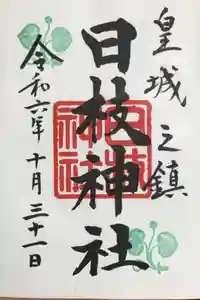 皇城之鎮
日枝神社
令和六年十月三十一日